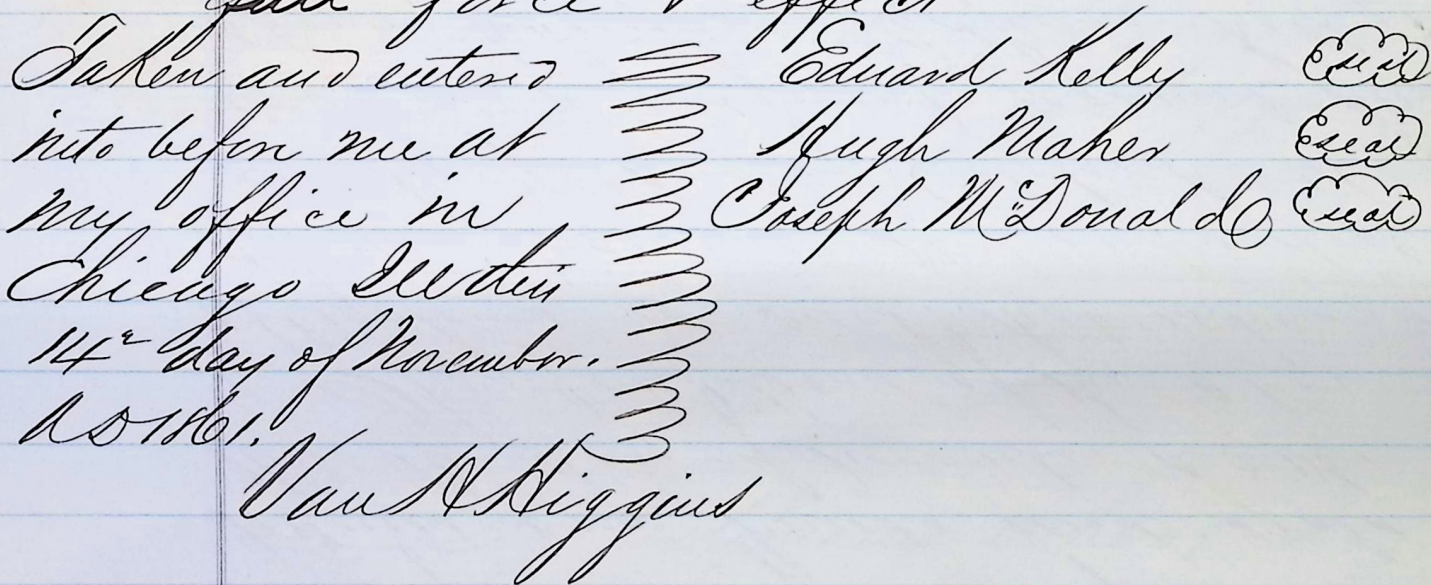 full force & effect
Taken and entered
into before me at
my office in
Chicago Ills this
14th day of November.
A D 1861.
Van H Higgins
Edward Kelly seal
Hugh Maher seal
Joseph McDonald seal